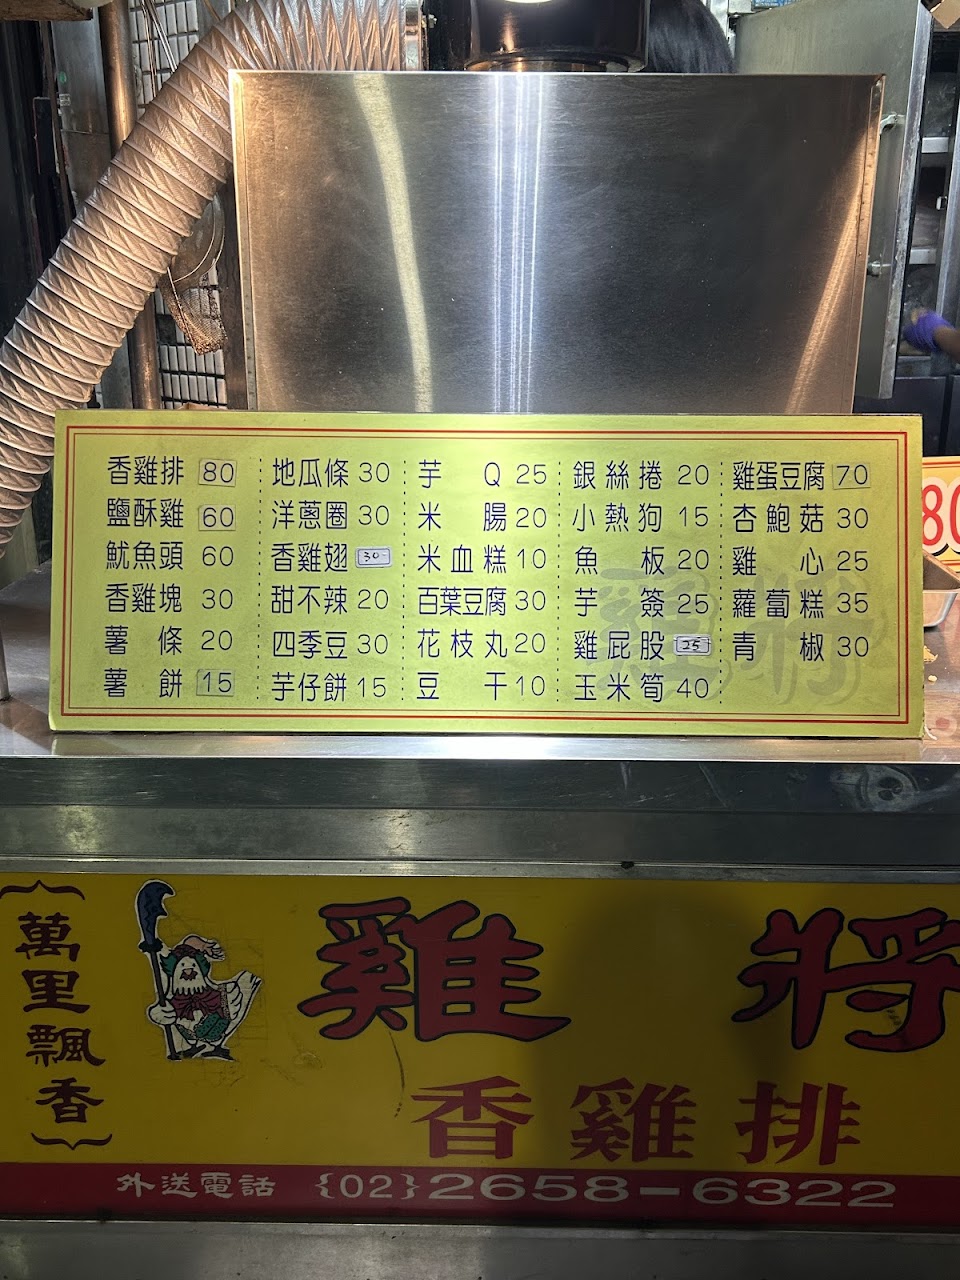 香雞排 80
鹽酥雞 60
魷魚頭 60
香雞塊 30
薯條 20
薯餅 15
地瓜條 30
洋蔥圈 30
香雞翅 30-
甜不辣 20
四季豆 30
芋仔餅 15
芋Q 25
米腸 20
米血糕 10
百葉豆腐 30
花枝丸 20
豆干 10
銀絲捲 20
小熱狗 15
魚板 20
芋簽 25
雞屁股 25
玉米筍 40
雞蛋豆腐 70
杏鮑菇 30
雞心 25
蘿蔔糕 35
青椒 30
雞將
80
{萬里飄香}
雞將
香雞排
外送電話 {02}2658-6322